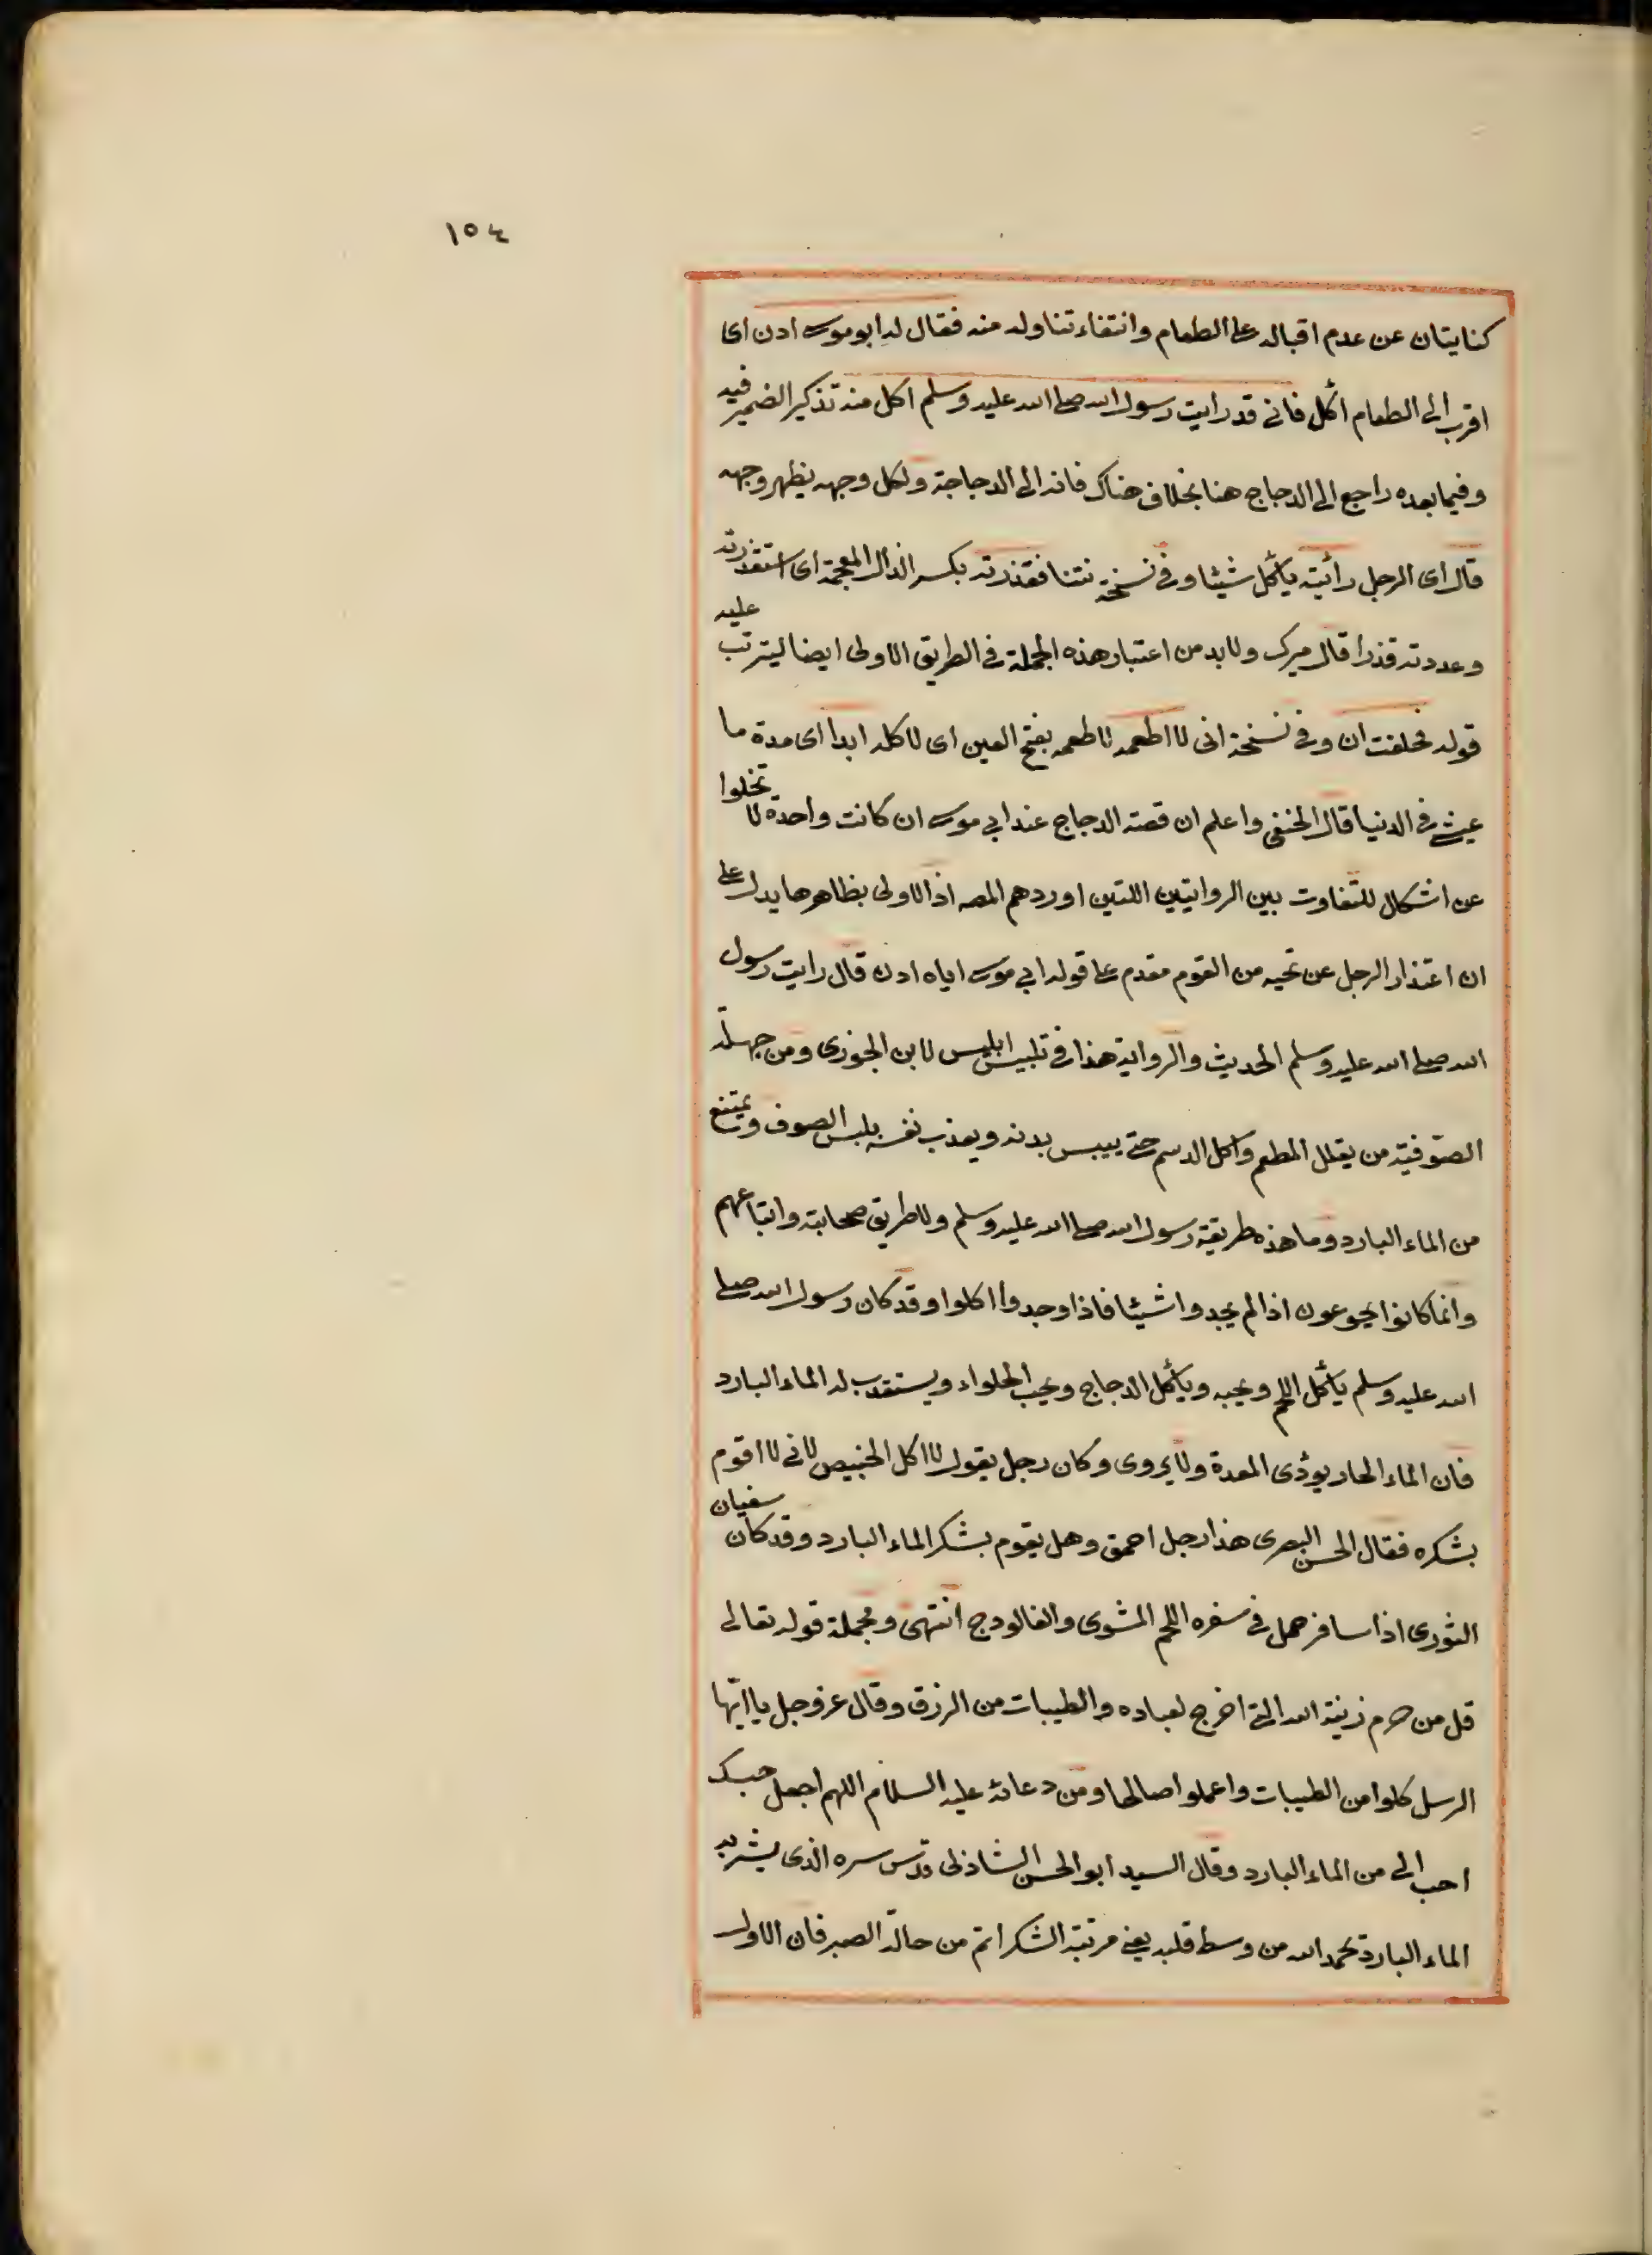 ١٥٤
كنايتان عن عدم اقباله على الطعام وانتفاء تناوله منه فقال له ابو موسى ادن اى
اقرب الى الطعام اكل فانى قد رايت رسول الله صلى الله عليه وسلم اكل منه تذكير الضمير فيه
وفيما بعده راجع الى الدجاج هنا بخلاف هناك فانه الى الدجاجة ولكل وجهه يظهر وجهه
قال اى الرجل رأيته يأكل شيئا وفى نسخة نتنا فقذرته بكسر الذال المعجمة اى استقذرته
وعددته قذرا قال ميرك ولا بد من اعتبار هذه الجملة فى الطريق الاولى ايضا ليترتب عليه
قوله فحلفت ان وفى نسخة انى لا اطعمه لا طعمه بفتح العين اى لا كله ابدا اى مدة ما
عيشى فى الدنيا قال الحنفى واعلم ان قصة الدجاج عند ابى موسى ان كانت واحدة لا تخلوا
عن اشكال للتفاوت بين الروايتين اللتين اوردهم المصه اذ الاولى بظاهرها يدل على
ان اعتذار الرجل عن تنحيه من القوم مقدم على قوله ابى موسى اياه ادن قال رايت رسول
الله صلى الله عليه وسلم الحديث والرواية هذا فى تلبيس ابليس لابن الجوزى ومن جهلة
الصوفية من يقلل المطعم واكل الدسم حتى ييبس بدنه ويعذب نفسه بلبس الصوف ويمتنع
من الماء البارد وما هذه طريقة رسول الله صلى الله عليه وسلم ولا طريق صحابته واتباعهم
وانما كانوا يجوعون اذا لم يجدوا شيئا فاذا وجدوا اكلوا وقد كان رسول الله صلى
الله عليه وسلم يأكل اللحم ويحبه ويأكل الدجاج ويحب الحلواء ويستعذب له الماء البارد
فان الماء الحار يوذى المعدة ولا يروى وكان رجل يقول لا اكل الخبيص لانى لا اقوم
بشكره فقال الحسن البصرى هذا رجل احمق وهل يقوم بشكر الماء البارد وقد كان سفيان
الثورى اذا سافر حمل فى سفره اللحم المشوى والفالودج انتهى ومجملة قوله تعالى
قل من حرم زينة الله التى اخرج لعباده والطيبات من الرزق وقال عز وجل يا ايها
الرسل كلوا من الطيبات واعملوا صالحا ومن دعائه عليه السلام اللهم اجعل حبك
احب الى من الماء البارد وقال السيد ابو الحسن الشاذلى قدس سره الذى يشرب
الماء البارد يحمد الله من وسط قلبه يعنى مرتبة الشكر اتم من حالة الصبر فان الاول